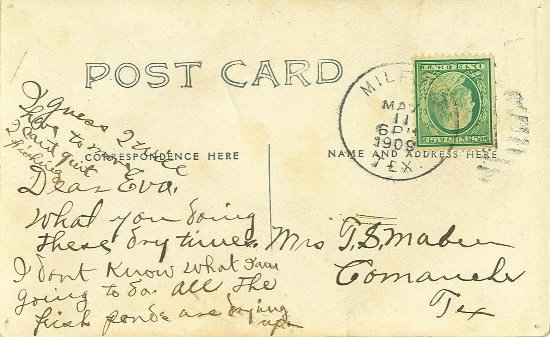 POST CARD
I guess I will
have to move
I cant quit
fishing
CORRESPONDENCE HERE
NAME AND ADDRESS HERE
MILF
MAY
11
6 P
1909
TEX
Dear Eva.
What you doing
these dry times.
I dont Know what I am
going to do. All the
fish ponds are drying
up.
Mrs T.S. Maben
Comanche
Tex